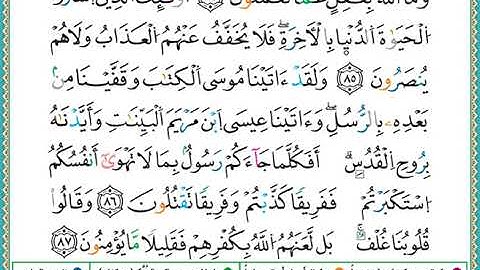 وَمَا اَللَّهُ بِغَٰفِلٍ عَمَّا أُوْلَٰٓئِكَ اَلَّذِينَ
اَلْحَيَوٰةَ اَلدُّنْيَا بِالْأَخِرَةِ فَلَا يُخَفَّفُ عَنْهُمُ اَلْعَذَابُ وَلَا هُمْ
يُنصَرُونَ ٨٥ وَلَقَدْ ءَاتَيْنَا مُوسَى اَلْكِتَٰبَ وَقَفَّيْنَا مِنۢ
بَعْدِهِۦ بِالرُّسُلِ وَءَاتَيْنَا عِيسَى اَبْنَ مَرْيَمَ اَلْبَيِّنَٰتِ وَأَيَّدْنَٰهُ
بِرُوحِ اِلْقُدُسِ أَفَكُلَّمَا جَآءَكُمْ رَسُولُۢ بِمَا لَا تَهْوَىٰٓ أَنفُسُكُمُ
اُسْتَكْبَرْتُمْ فَفَرِيقًا كَذَّبْتُمْ وَفَرِيقًا تَقْتُلُونَ ٨٦ وَقَالُوا
قُلُوبُنَا غُلْفُۢ بَل لَّعَنَهُمُ اُللَّهُ بِكُفْرِهِمْ فَقَلِيلًا مَّا يُؤْمِنُونَ ٨٧